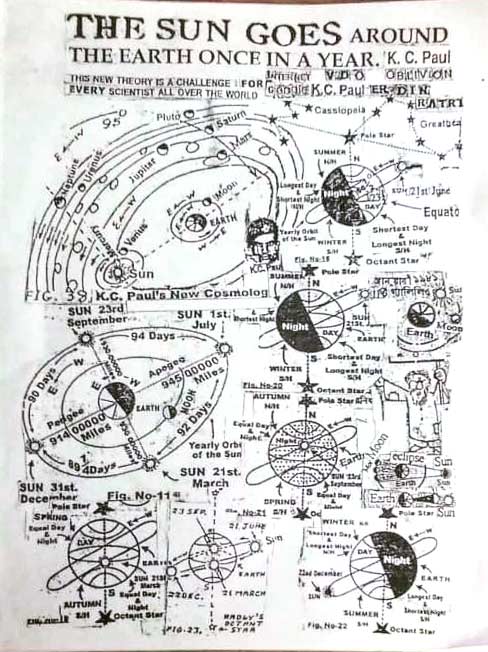 THE SUN GOES AROUND
THE EARTH ONCE IN A YEAR. K. C. Paul
THIS NEW THEORY IS A CHALLENGE FOR
EVERY SCIENTIST ALL OVER THE WORLD
K.C. Paul
95°
E←W
Pluto
Saturn
Mars
Neptune
Uranus
Jupiter
Moon
EARTH
W←E
Mercury
Venus
Sun
FIG. 39. K.C. Paul's New Cosmolog
Cassiopeia
Pole Star
Great
SUMMER
N/H
E←W
Longest Day
&
Shortest Night
N/H
Night
DAY
21st June
Equato
Yearly Orbit
of the Sun
WINTER
S/H
S
Shortest Day
&
Longest Night
S/H
Octant Star
Fig. No-18
K.C. Paul
Pole Star
SUMMER
N/H
N
E←W
Shortest Night
Night
DAY
SUN
21st
EARTH
WINTER
S/H
S
Shortest Day
&
Longest Night
S/H
Fig. No-20
Octant Star
Earth
Sun
Moon
SUN 23rd
September
SUN 1st.
July
94 Days
Apogee
945/00000
Miles
90 Days
W
E
EARTH
MOON
92 Days
Perigee
914 00000
Miles
89 4Days
Yearly Orbi
of the Sun
SUN 21st.
March
SUN 31st.
December
Fig. No-11
AUTUMN
N/H
Pole Star
N
Equal Day
&
Night
Night
E←W
Earth
SUN 23rd
September
SPRING
S/H
S
Equal Day
&
Night
Fig. No-21
Moon
eclipse
Sun
Earth
Sun
Pole Star
SPRING
N/H
N
E←W
Equal Day
&
Night
DAY
EARTH
SUN 21st
March
AUTUMN
S/H
S
Equal Day
&
Night
Octant Star
23 SEP.
21 JUNE
Sun
EARTH
22 DEC.
21 MARCH
HADLY'S
OCTANT
STAR
FIG-23.
Pole Star
WINTER N/H
N
E←W
Shortest Day
&
Longest Night
N/H
DAY
Night
22nd December
SUN
EARTH
Longest Day
&
Shortest Night
S/H
SUMMER
S/H
S
Fig. No-22
Octant Star